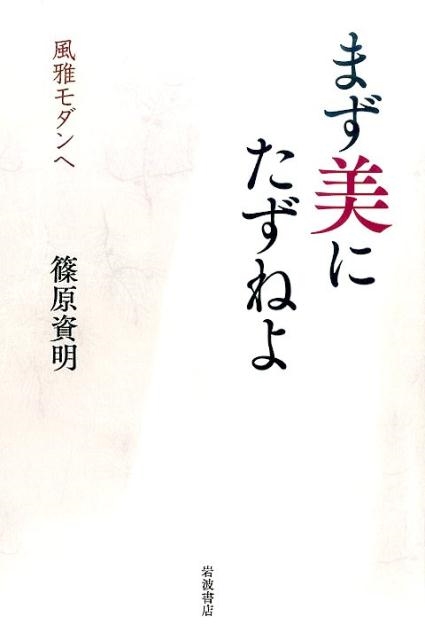 まず美に
たずねよ
風雅モダンへ
篠原資明
岩波書店